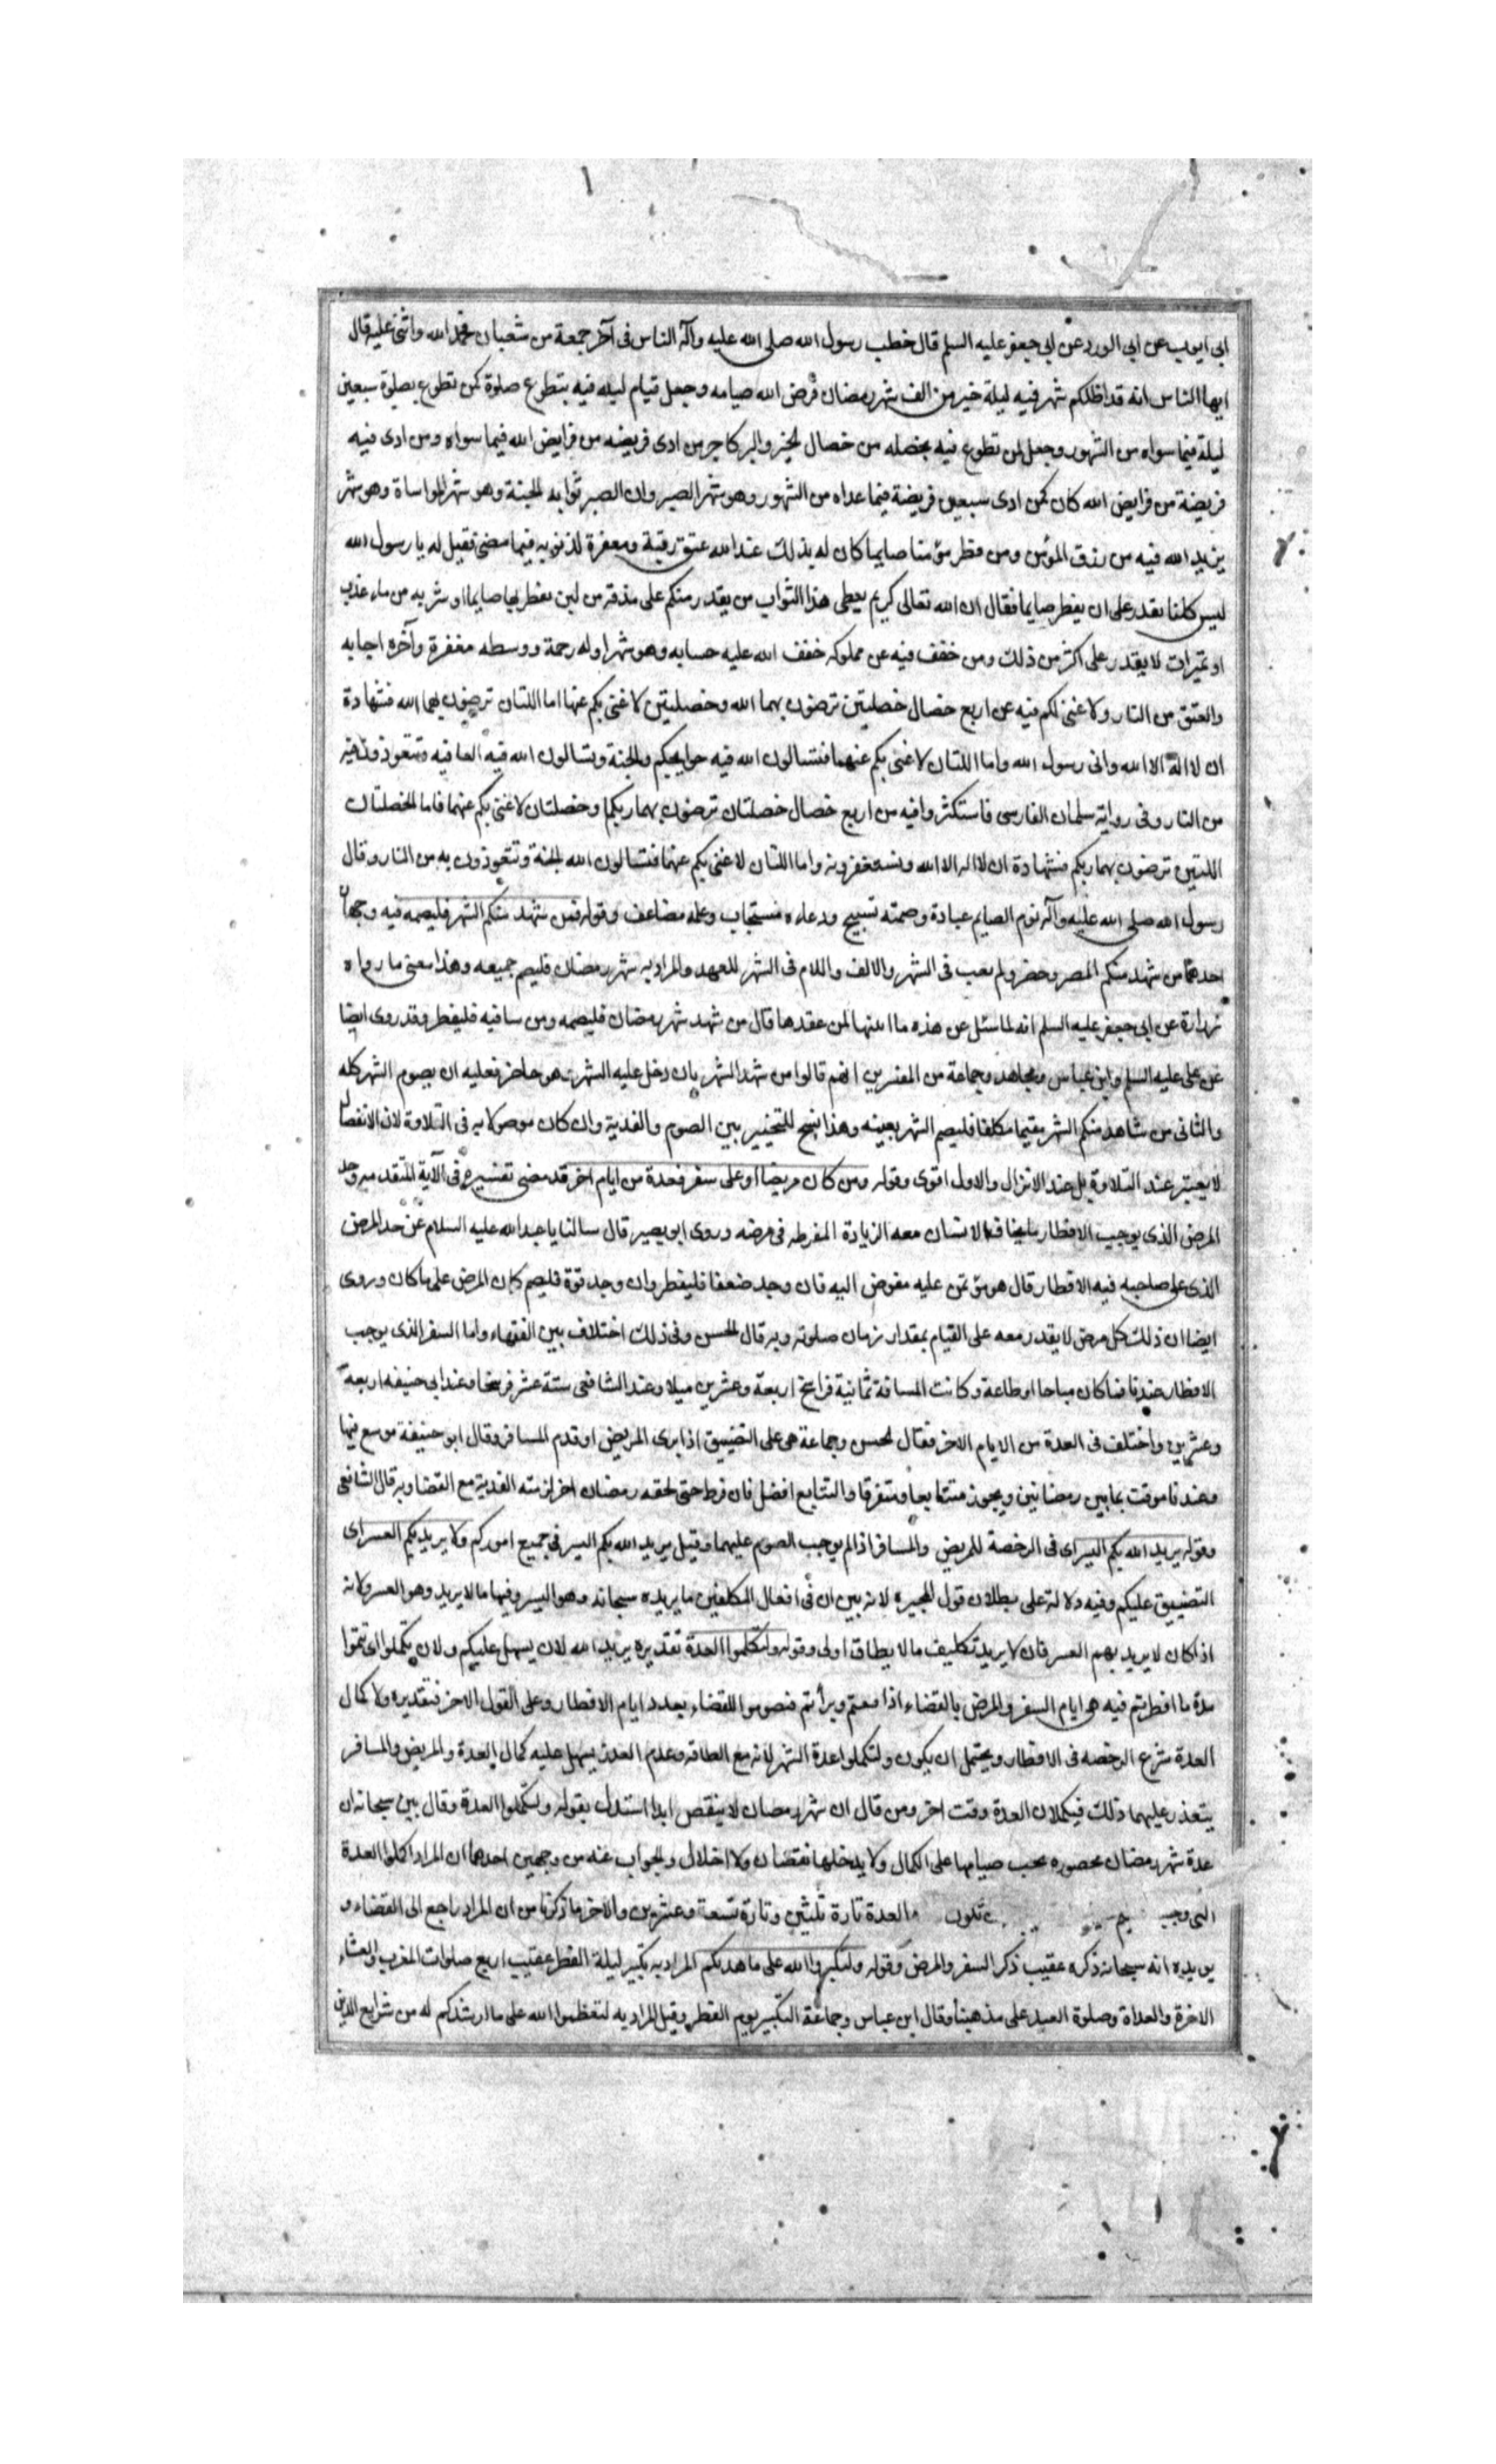 ابى ايوب عن ابى الورد عن ابى جعفر عليه السلم قال خطب رسول الله صلى الله عليه وآله الناس فى آخر جمعة من شعبان فحمد الله واثنى عليه قال
ايها الناس انه قد اظلكم شهر فيه ليلة خير من الف شهر رمضان فرض الله صيامه وجعل قيام ليله فيه بتطوع صلوة كمن تطوع بصلوة سبعين
ليلة فيما سواه من الشهور وجعل لمن تطوع فيه بخصله من خصال الخير والبر كاجر من ادى فريضه من فرايض الله فيما سواه ومن ادى فيه
فريضة من فرايض الله كان كمن ادى سبعين فريضة فيما عداه من الشهور وهو شهر الصبر وان الصبر ثوابه الجنة وهو شهر المواساة وهو شهر
يزيد الله فيه من رزق المؤمن ومن فطر مؤمنا صايما كان له بذلك عند الله عتق رقبة ومغفرة لذنوبه فيما مضى فقيل له يا رسول الله
ليس كلنا نقدر على ان يفطر صايما فقال ان الله تعالى كريم يعطى هذا الثواب من يقدر منكم على مذقة من لبن يفطر بها صايما او شربه من ماء عذب
او تميرات لا يقدر على اكثر من ذلك ومن خفف فيه عن مملوكه خفف الله عليه حسابه وهو شهر اوله رحمة ووسطه مغفرة وآخره اجابه
والعتق من النار ولا غنى لكم فيه عن اربع خصال خصلتين ترضون بهما الله وخصلتين لا غنى بكم عنها اما اللتان ترضون بهما الله فشهادة
ان لا اله الا الله وانى رسول الله واما اللتان لا غنى بكم عنهما فتسالون الله فيه حوايجكم والجنة وتسالون الله فيه العافيه وتتعوذون فيه
من النار وفى رواية سلمان الفارسى فاستكثروا فيه من اربع خصال خصلتان ترضون بهما ربكم وخصلتان لا غنى بكم عنهما فاما الخصلتان
اللتين ترضون بهما ربكم فشهادة ان لا اله الا الله وتستغفرونه واما اللتان لا غنى بكم عنهما فتسالون الله الجنة وتتعوذون به من النار وقال
رسول الله صلى الله عليه وآله نوم الصايم عبادة وصمته تسبيح ودعاءه مستجاب وعمله مضاعف وقوله فمن شهد منكم الشهر فليصمه فيه وجهان
احدهما من شهد منكم المصر وحضر ولم يغب فى الشهر والالف واللام فى الشهر للعهد والمراد به شهر رمضان فليصم جميعه وهذا معنى ما رواه
زرارة عن ابى جعفر عليه السلم انه لما سئل عن هذه ما ابينها لمن عقدها قال من شهد شهر رمضان فليصمه ومن سافر فيه فليفطر وقد روى ايضا
عن على عليه السلم وابن عباس ومجاهد وجماعة من المفسرين انهم قالوا من شهد الشهر بان دخل عليه الشهر وهو حاضر فعليه ان يصوم الشهر كله
والثانى من شاهد منكم الشهر مقيما مكلفا فليصم الشهر بعينه وهذا نسخ للتخيير بين الصوم والفدية وان كان موصولا به فى التلاوة لان الانفصال
لا يعتبر عند التلاوة بل عند الانزال والاول اقوى وقوله ومن كان مريضا او على سفر فعدة من ايام اخر قد مضى تفسيره فى الآية المتقدمه وحد
المرض الذى يوجب الافطار ما يخاف الانسان معه الزيادة المفرطه فى مرضه وروى ابو بصير قال سالنا ابا عبد الله عليه السلام عن حد المرض
الذى على صاحبه فيه الافطار قال هو مؤتمن عليه مفوض اليه فان وجد ضعفا فليفطر وان وجد قوة فليصم كان المرض على ما كان وروى
ايضا ان ذلك كل مرض لا يقدر معه على القيام بمقدار زمان صلوته وبه قال الحسن وفى ذلك اختلاف بين الفقهاء واما السفر الذى يوجب
الافطار عندنا فما كان مباحا او طاعة وكانت المسافة ثمانية فراسخ اربعة وعشرين ميلا وعند الشافعى ستة عشر فرسخا وعند ابى حنيفه اربعة
وعشرين واختلف فى العدة من الايام الاخر فقال الحسن وجماعة هى على التضييق اذا برى المريض او قدم المسافر وقال ابو حنيفة موسع فيها
وعندنا موقت بما بين رمضانين ويجوز متتابعا ومتفرقا والتتابع افضل فان فرط حتى لحقه رمضان اخر لزمته الفدية مع القضا وبه قال الشافعى
وقوله يريد الله بكم اليسر اى فى الرخصة للمريض والمسافر اذ لم يوجب الصوم عليهما وقيل يريد الله بكم اليسر فى جميع اموركم ولا يريد بكم العسر اى
التضييق عليكم وفيه دلالة على بطلان قول المجبره لانه بين ان فى افعال المكلفين ما يريده سبحانه وهو اليسر وفيها ما لا يريد وهو العسر ولانه
اذا كان لا يريد بهم العسر فان لا يريد تكليف ما لا يطاق اولى وقوله ولتكملوا العدة تقديره يريد الله لان يسهل عليكم ولان تكملوا اى تتموا
عدة ما افطرتم فيه هى ايام السفر والمرض بالقضاء اذا اقمتم وبرأتم فتصوموا للقضاء بعدد ايام الافطار وعلى القول الاخر فتقديره ولاكمال
العدة شرع الرخصه فى الافطار ويحتمل ان يكون ولتكملوا عدة الشهر لانه مع الطاقه وعدم العذر يسهل عليه كمال العدة والمريض والمسافر
يتعذر عليهما ذلك فيكملان العدة وقت اخر ومن قال ان شهر رمضان لا ينقص ابدا استدل بقوله ولتكملوا العدة وقال بين سبحانه ان
عدة شهر رمضان محصوره يجب صيامها على الكمال ولا يدخلها نقصان ولا اختلال والجواب عنه من وجهين احدهما ان المراد اكملوا العدة
التى وجب تكون العدة تارة ثلثين وتارة تسعة وعشرين والاخر ما ذكرنا من ان المراد راجع الى القضاء و
يويده انه سبحانه ذكره عقيب ذكر السفر والمرض وقوله ولتكبروا الله على ما هديكم المراد به تكبير ليلة الفطر عقيب اربع صلوات المغرب والعشاء
الاخرة والغداة وصلوة العيد على مذهبنا وقال ابن عباس وجماعة التكبير يوم الفطر وقيل المراد به لتعظموا الله على ما ارشدكم له من شرايع الدين